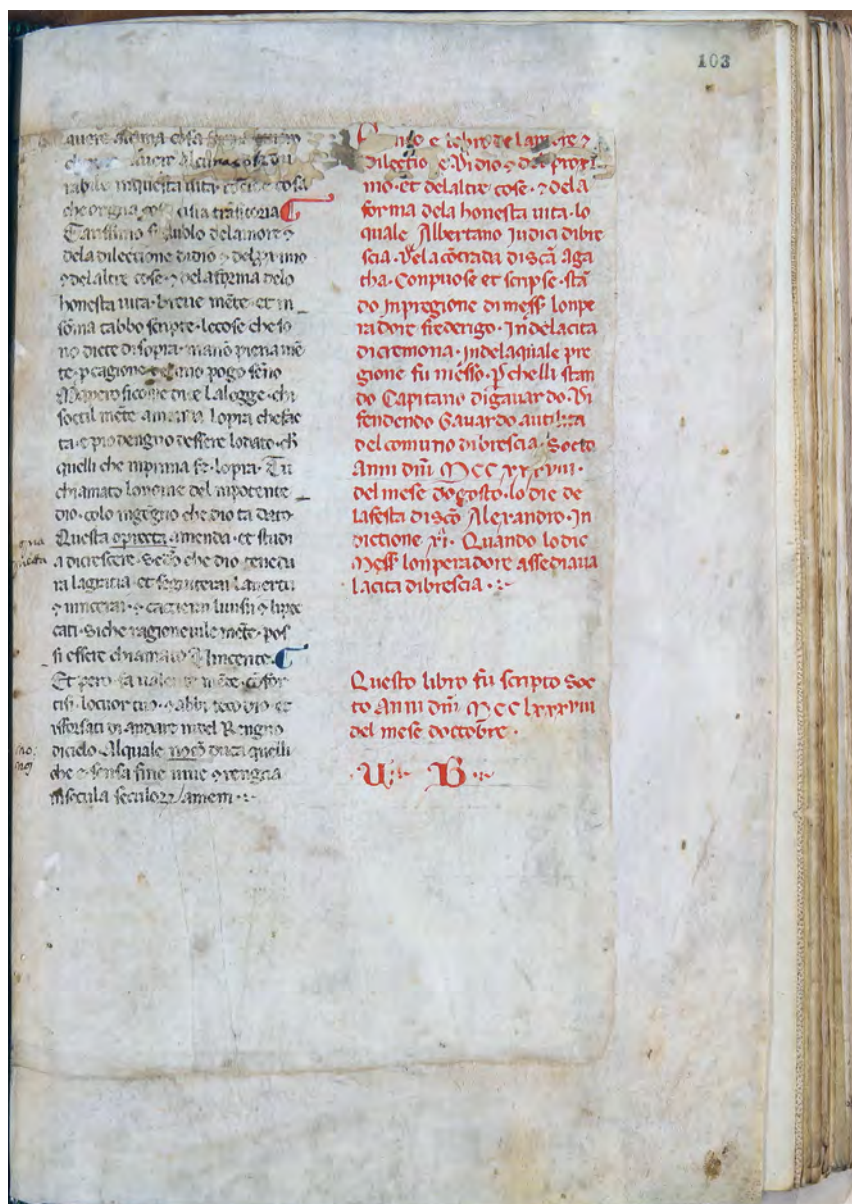 103
auere alcuna cosa
auere alcuna cosa du
rabile inquesta uita cõcio e cosa
che ongna cosa cisia trãsitoria
Carissimo figluolo delamore ⁊
dela dilectione didio ⁊ del proximo
⁊ delaltre cose ⁊ dela forma delo
honesta uita breue mẽte et in
sõma tabbo scripte lecose che so
no dicte disopra mãnõ piena mẽ
te p cagione del mio pogo sẽno
Mapero sicome dice Lalogge chi
soctil mẽte amenda lopra chefac
ta e piodengno dessere lodato ch̃
quelli che inprima fe lopra Tu
chiamato lonome del inpotente
dio colo ingegno che dio ta dato
Questa operecta amenda et studi
a dicrescere Secõdo che dio tenedu
ra lagratia et seguiterai lauertu
⁊ uincerai ⁊ cacierai luitii ⁊ lipec
cati siche ragioneuile mẽte pos
si essere chiamato Vincente
Et pero sa ualente mẽte cõfor
tisi locuor tuo ⁊ abbi teco dio et
isforsati di andare indel Rengno
dicielo Alquale noi cõduca quelli
che e sensa fine uiue ⁊ rengna
insecula seculoꝝ amem
e lobro de lamore ⁊
Dilectio e Di dio ⁊ del proxi
mo et delaltre cose ⁊ dela
forma dela honesta uita lo
quale Albertano Judici dibre
scia Dela cõtrada discã aga
tha Conpuose et scripse stã
do Inpregione di mess̃ lonpe
radore frederigo Indelacita
dicremona Indelaquale pre
gione fu messo p̃ chelli stan
do Capitano digauardo Di
fendendo Gauardo autilita
del comuno dibrescia Socto
Anni dñi MCCxxxviii
del mese dogosto lo die de
lafesta discõ Alexandro In
dictione xi Quando lodic
Mess̃ lonperadore assediaua
lacita dibrescia
Questo libro fu scripto Soc
to Anni dñi MCClxxxviii
del mese doctobre
U B